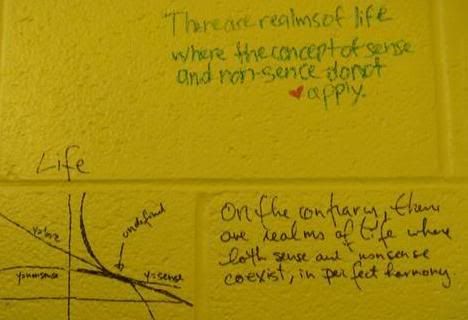 There are realms of life
where the concept of sense
and non-sence donot
apply.
Life
undefined
y=nonsense
y=sense
On the contrary, there
are realms of life where
both sense and nonsense
coexist, in perfect harmony